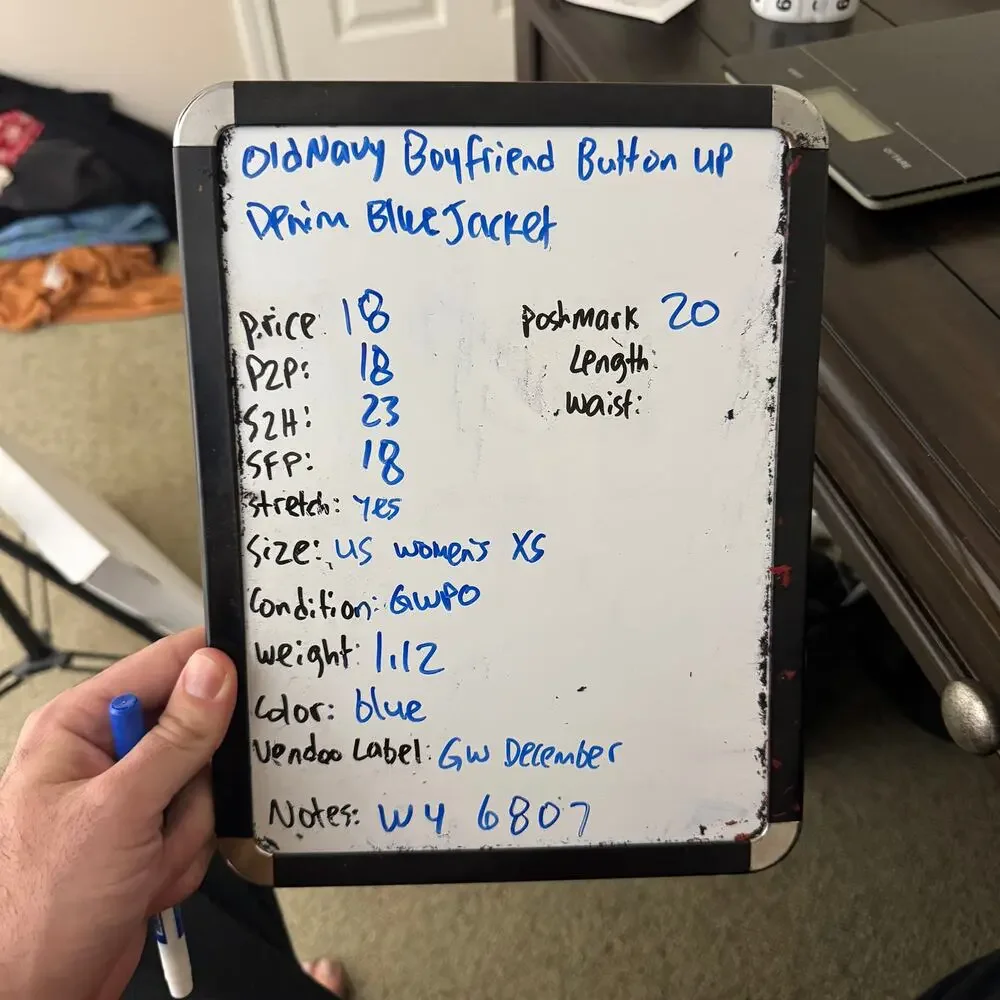 OldNavy Boyfriend Button up
Denim Blue Jacket
price: 18
Poshmark 20
P2P: 18
Length:
S2H: 23
waist:
SFP: 18
Stretch: yes
Size: US women's XS
Condition: GWPO
weight: 1.12
Color: blue
Vendoo Label: GW December
Notes: W4 6807